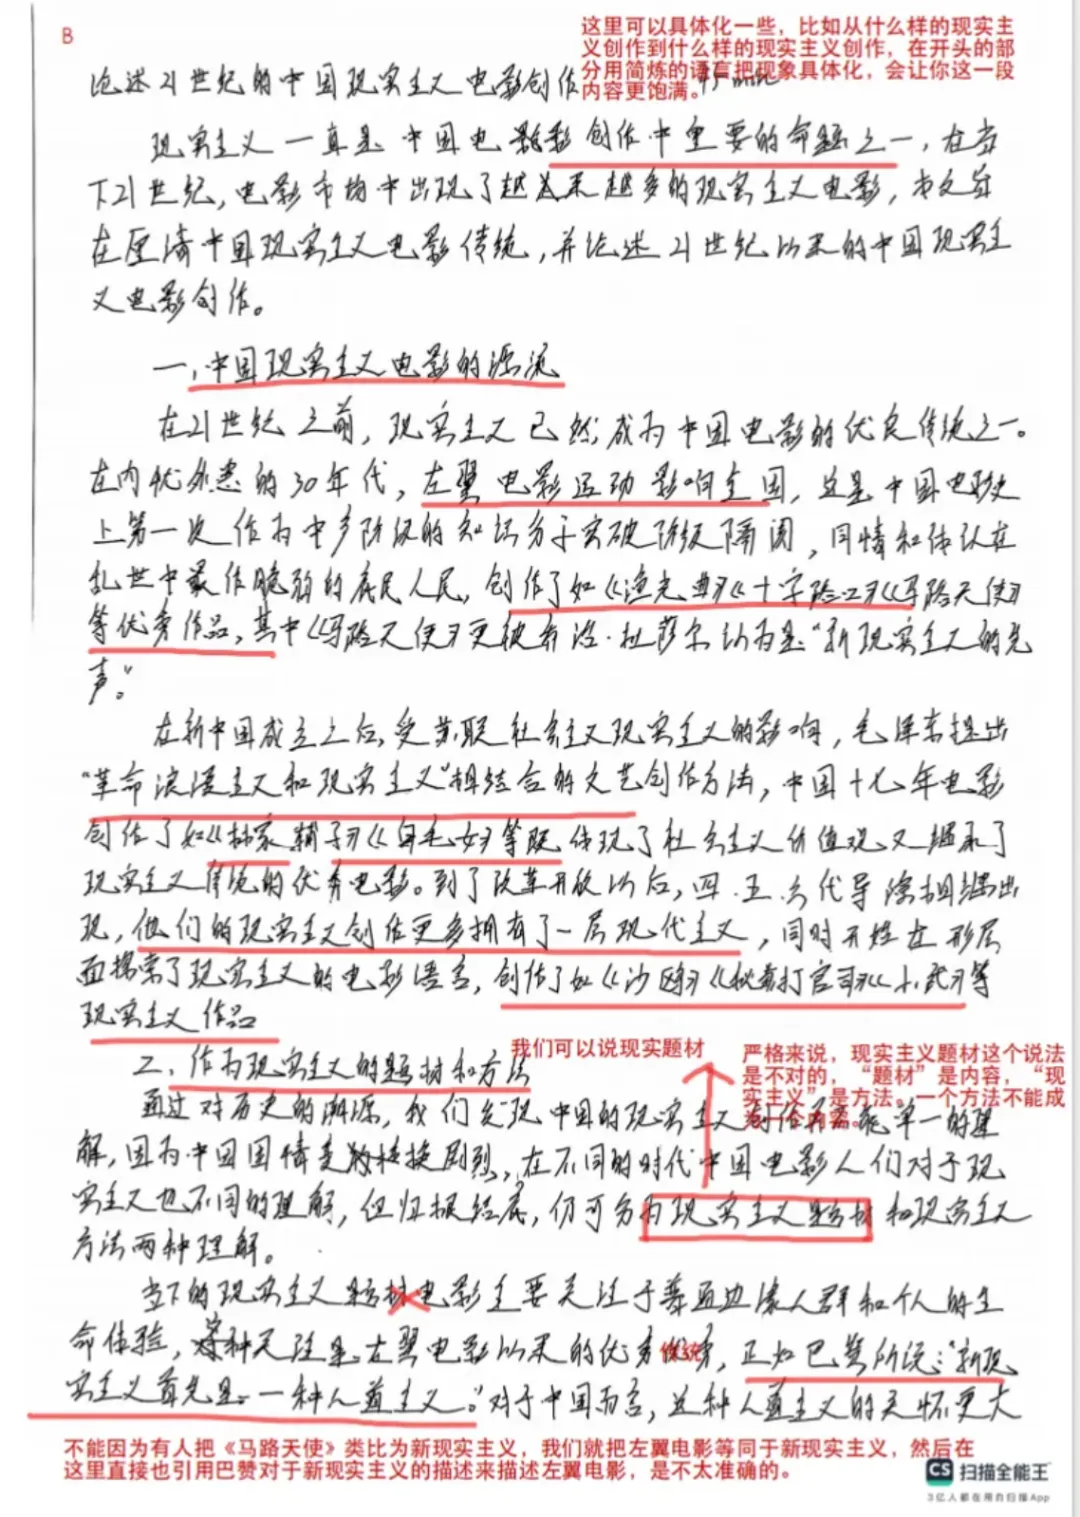 B
这里可以具体化一些，比如从什么样的现实主
义创作到什么样的现实主义创作，在开头的部
分用简炼的语言把现象具体化，会让你这一段
内容更饱满。
论述21世纪的中国现实主义电影创作 45min
现实主义一直是中国电影创作中重要的命题之一，在当
下21世纪，电影市场中出现了越来越多的现实主义电影，本文旨
在厘清中国现实主义电影传统，并论述21世纪以来的中国现实主
义电影创作。
一，中国现实主义电影的源流
在21世纪之前，现实主义已然成为中国电影的优良传统之一。
在内忧外患的30年代，左翼电影运动影响全国，这是中国电影史
上第一次作为中产阶级的知识分子突破阶级隔阂，同情和体认在
乱世中最作脆弱的底民人民，创作了如《渔光曲》《十字路口》《马路天使》
等优秀作品，其中《马路天使》更被乔治·杜萨尔认为是“新现实主义的先
声。”
在新中国成立之后，受苏联社会主义现实主义的影响，毛泽东提出
“革命浪漫主义和现实主义”相结合的文艺创作方法，中国十七年电影
创作了如《林家铺子》《白毛女》等既体现了社会主义价值观又继承了
现实主义传统的优秀电影。到了改革开放以后，四、五、六代导演相继出
现，他们的现实主义创作更多拥有了一层现代主义，同时开始在形层
面探索了现实主义的电影语言，创作了如《沙鸥》《秋菊打官司》《小武》等
现实主义作品
二、作为现实主义的题材和方法
我们可以说现实题材
严格来说，现实主义题材这个说法
是不对的，“题材”是内容，“现
实主义”是方法。一个方法不能成
为一个内容。
通过对历史的溯源，我们发现中国的现实主义创作不能单一的理
解，因为中国国情变转换剧烈，在不同的时代中国电影人们对于现
实主义也不同的理解，但归根结底，仍可分为现实主义题材和现实主义
方法两种理解。
当下的现实主义题材电影主要关注于普通边缘人群和个人的生
命体验，这种关注是左翼电影以来的优秀传统，正如巴赞所说：“新现
实主义首先是一种人道主义。”对于中国而言，这种人道主义的关怀更大
不能因为有人把《马路天使》类比为新现实主义，我们就把左翼电影等同于新现实主义，然后在
这里直接也引用巴赞对于新现实主义的描述来描述左翼电影，是不太准确的。
CS 扫描全能王
3亿人都在用的扫描App